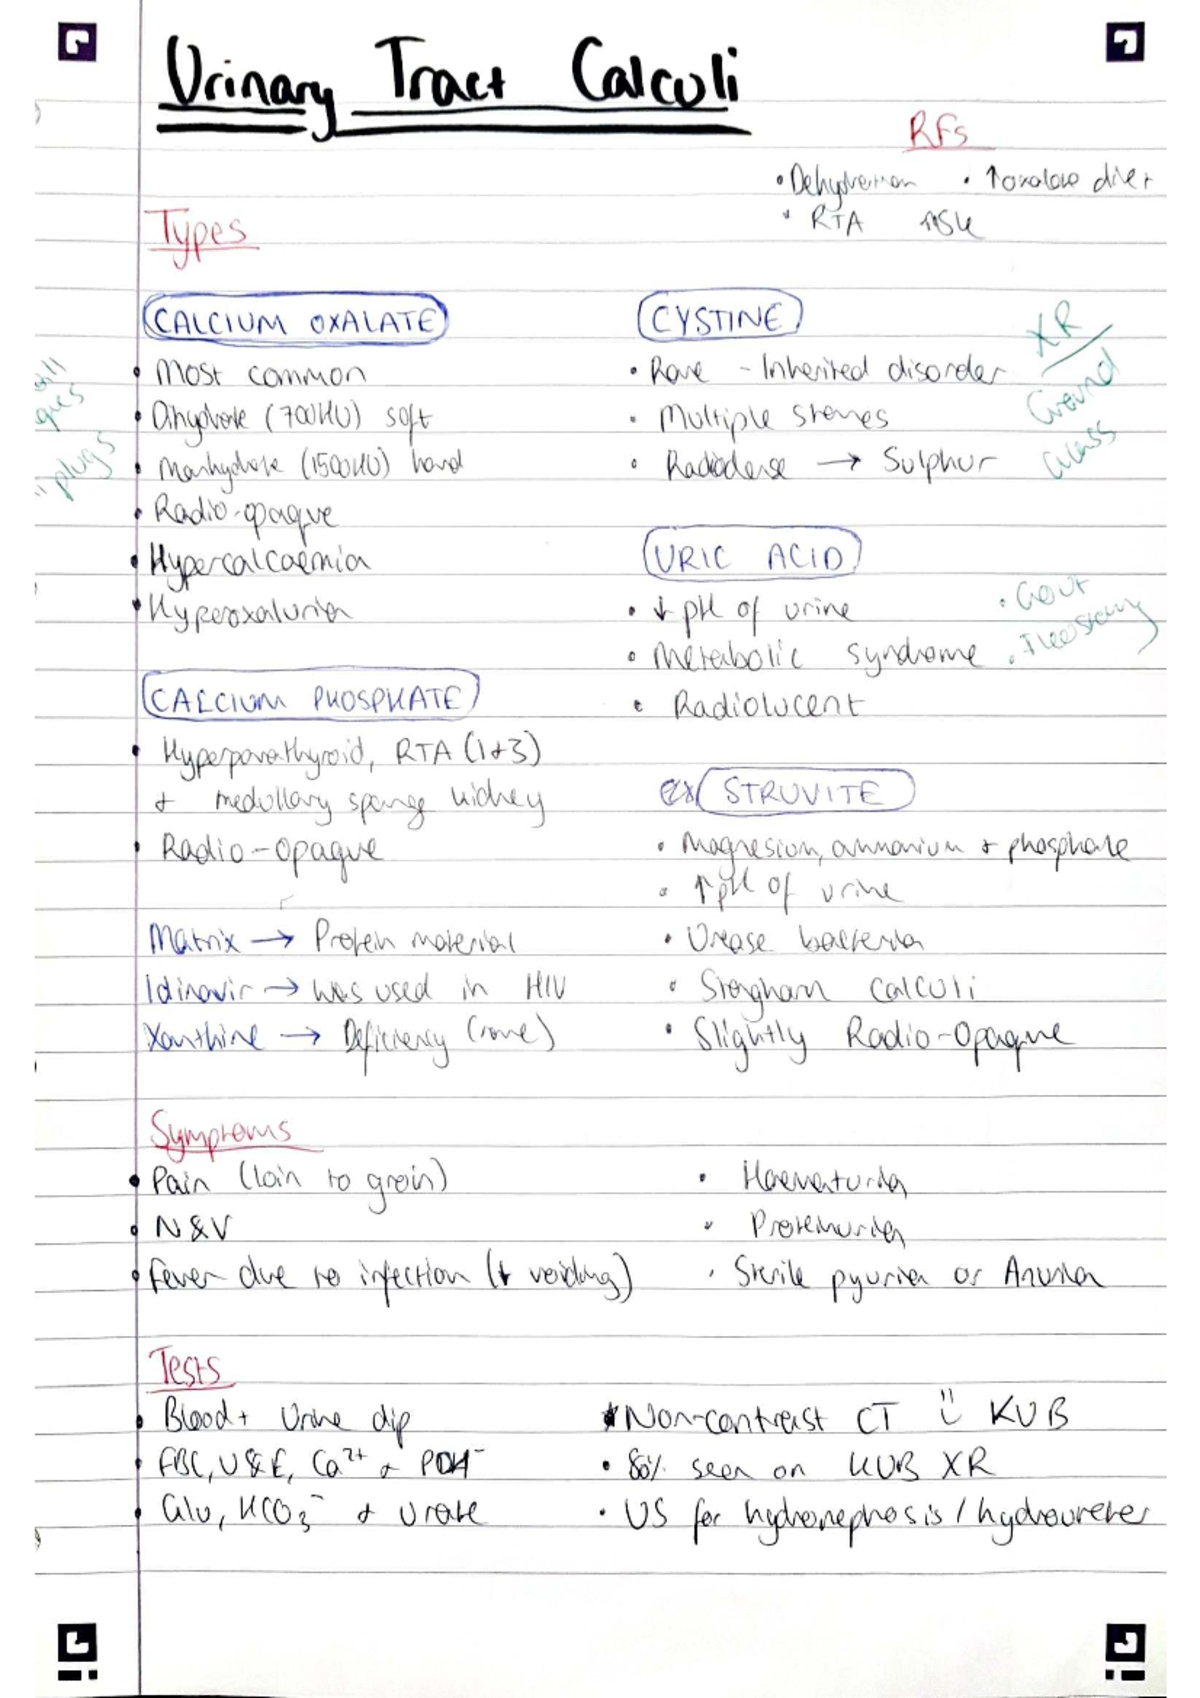 Urinary Tract Calculi
RFs
• Dehydration • ↑oxalate diet
• RTA ↑risk
Types
CALCIUM OXALATE
• Most common
• Dihydrate (700HU) soft
• Monhydrate (1500HU) hard
• Radio-opaque
• Hypercalcaemia
• Hyperoxaluria
plugs
CALCIUM PHOSPHATE
• Hyperparathyroid, RTA (1+3)
+ medullary sponge kidney
• Radio-opaque
Matrix → Protein material
Idinavir → was used in HIV
Xanthine → Deficiency (rare)
CYSTINE
• Rare - Inherited disorder
• Multiple stones
• Radiodense → Sulphur
XR
Ground
Glass
URIC ACID
• ↓ pH of urine
• Metabolic syndrome
• Radiolucent
• Gout
• Ileostomy
STRUVITE
• Magnesium, ammonium + phosphate
• ↑pH of urine
• Urease bacteria
• Staghorn calculi
• Slightly Radio-opaque
Symptoms
• Pain (loin to groin)
• N&V
• Fever due to infection (↓ voiding)
• Haematuria
• Proteinuria
• Sterile pyuria or Anuria
Tests
• Blood + Urine dip
• FBC, U&E, Ca²⁺ + PO4⁻
• Glu, HCO₃⁻ + Urate
* Non-contrast CT KUB
• 80% seen on KUB XR
• US for hydronephosis / hydroureter